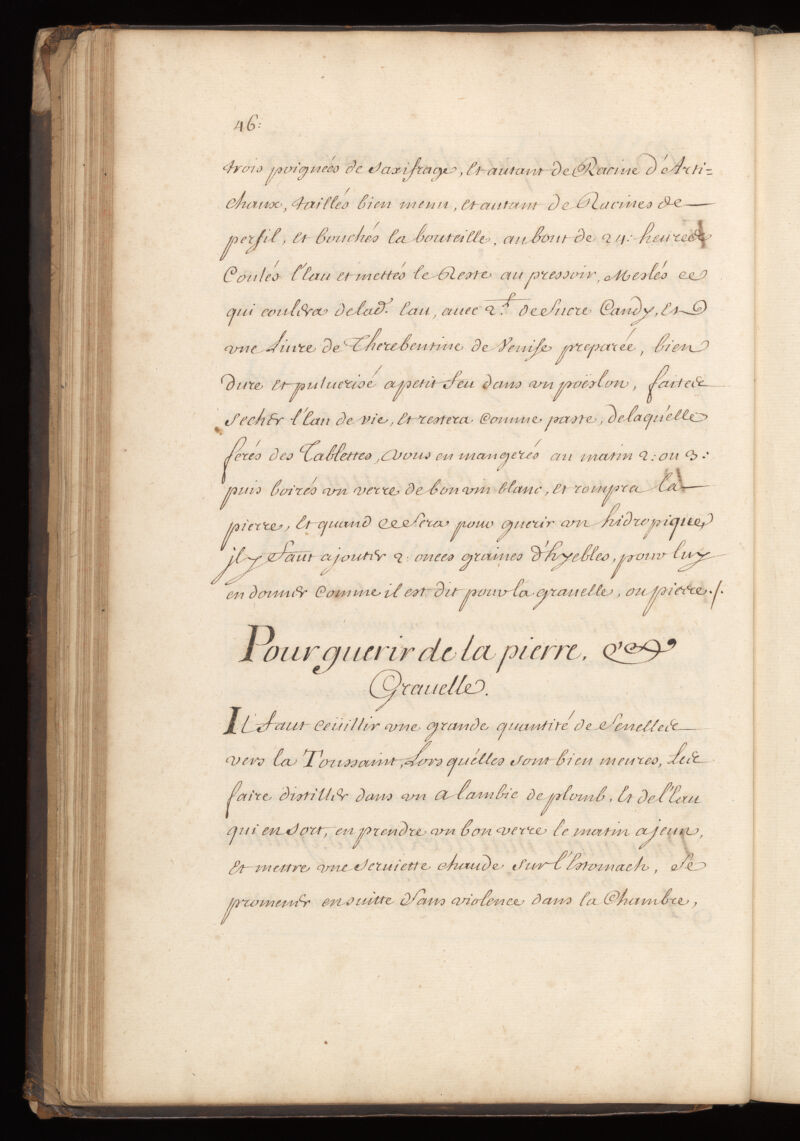 46:
trois poignées de saxifrage, Et autant de Racine d'Arti=
chaux, taillés bien menu, et autant de Racines de
persil, Et bouchés la bouteille, au bout de 24: heures
Coulés l'Eau et mettés le Reste au pressoir, Meslés ce
qui coulera de lad.e Eau, avec 2.l de Sucre Candy, Et
vne Liure de Therebentine de Venise preparée, bien
Dure Et puluerisé a petit feu dans vn poëslon, faites
secher l'Eau de vie, Et restera Comme paste, de laquelle
ferés des Tablettes, Vous en mangerés au matin 2: ou 3:
puis boirés vn verre de bon vin blanc, Et rompra la
pierre, Et quand ce Sera pour guerir vn hidropique,
jl y Faut ajouter 2: onces graines d'hyebles, pour luy
en donner Comme il est dit pour la grauelle, ou pierre./.
Pour guerir de la pierre, &
Grauelle.
Il Faut Ceüillir vne grande quantité de Senelles
vers la Toussaint, Lors qu'elles sont bien meures, Les
faire distiller dans vn Alambic de plomb, Et de l'Eau
qui en Sort, en prendre vn bon verre le matin a jeun,
Et mettre vne Seruiette chaude Sur l'Estomach, Se
promener en suitte Sans violence dans la Chambre,